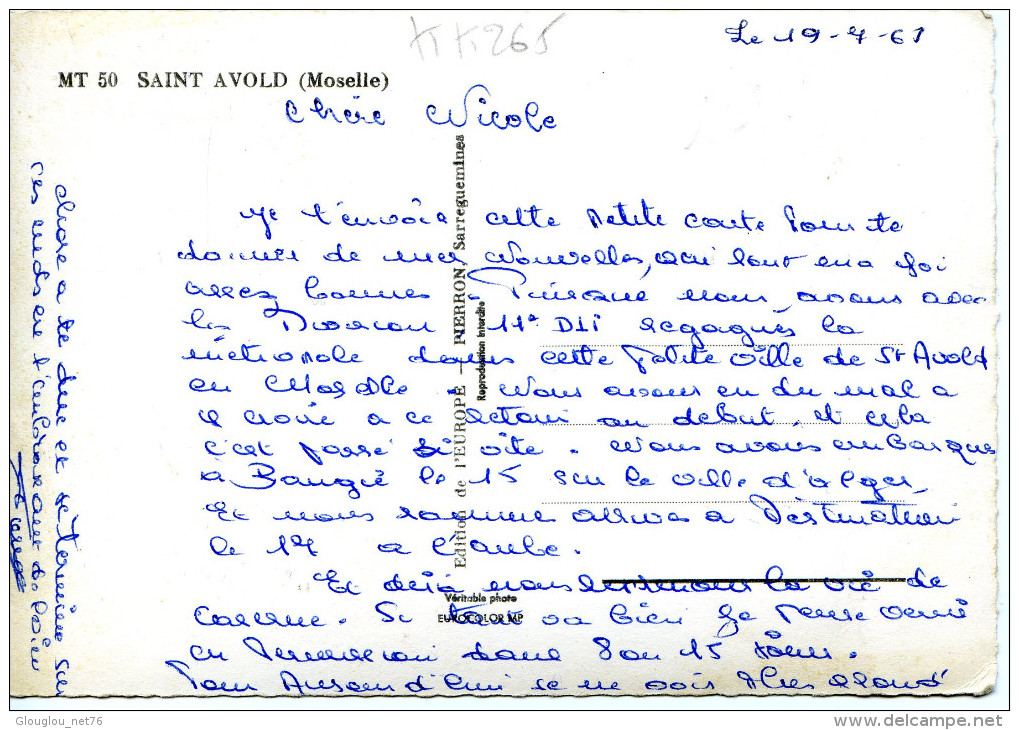 KK265
Le 19-7-61
MT 50 SAINT AVOLD (Moselle)
Chère Nicole
Je t'envoie cette petite carte pour te
donner de mes nouvelles, qui sont ma foi
assez bonnes. Puisque nous avons avec
la Division 11e DLI regagnés la
métropole dans cette petite ville de St Avold
en Moselle. Nous avons eu du mal a
y croire a ce retour au debut, et cela
c'est passé si vite. Nous avons embarqué
à Bougie le 15 sur le ville d'alger,
Et nous sommes arrivés a Destination
le 17 a l'aube.
Et déjà nous la vie de
caserne. Si tout va bien je pense venir
en permission dans 8 ou 15 jours.
Pour Aujourd'hui je ne vois plus grand
chose a te dire et je termine sur
ces mots en t'embrassant
Pierre
Edition de l'EUROPE — PIERRON, Sarreguemines
Reproduction Interdite
Véritable photo
EUROCOLOR MP
Glouglou_net76
delcampe.net